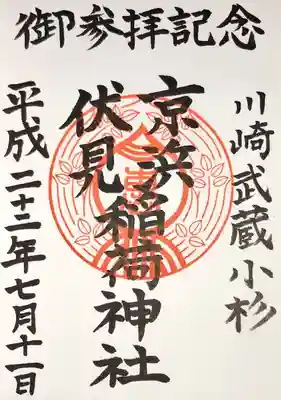 御参拝記念
川崎武蔵小杉
京浜
伏見稲荷神社
平成二十二年七月十一日